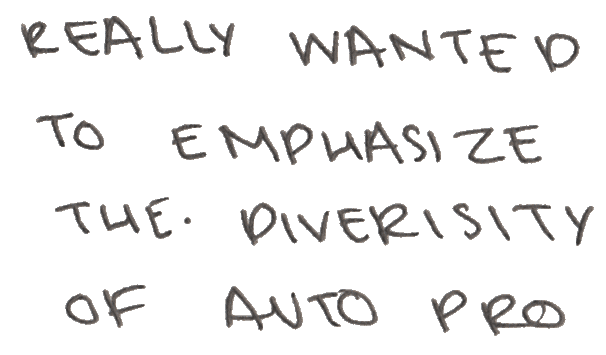 REALLY WANTED
TO EMPHASIZE
THE. DIVERISITY
OF AUTO PRO